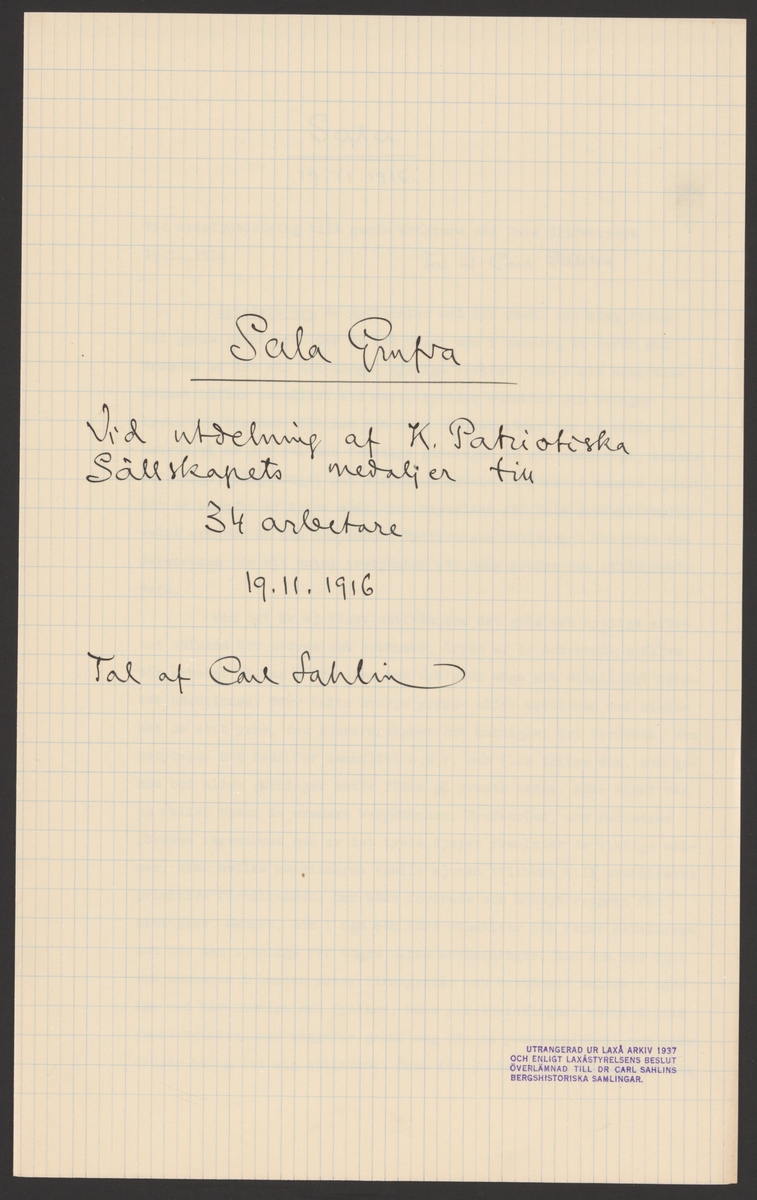 Sala Grufva
Vid utdelning af K. Patriotiska
Sällskapets medaljer till
34 arbetare
19.11.1916
Tal af Carl Sahlin
UTRANGERAD UR LAXÅ ARKIV 1937
OCH ENLIGT LAXÅSTYRELSENS BESLUT
ÖVERLÄMNAD TILL DR CARL SAHLINS
BERGSHISTORISKA SAMLINGAR.